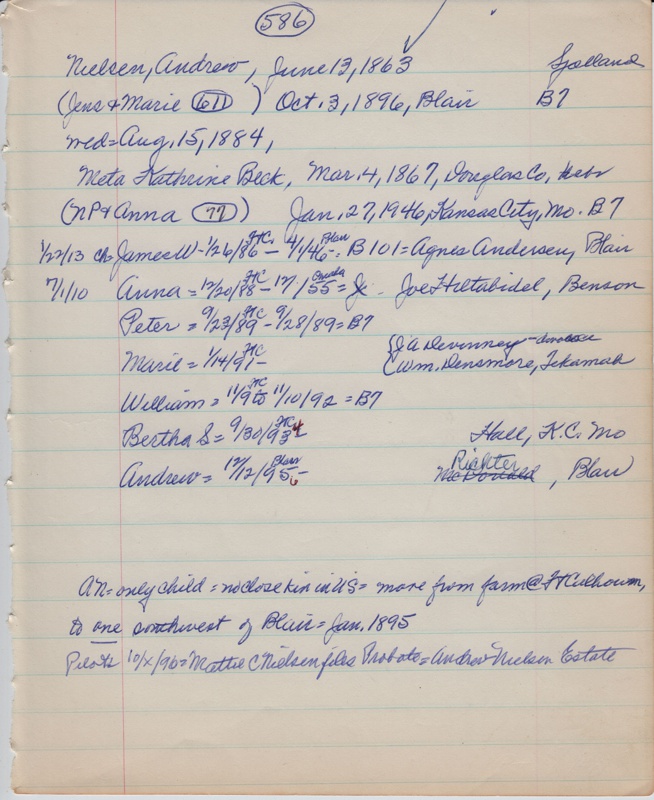 586
Nielsen, Andrew, June 13, 1863 Sjolland
(Jens & Marie 611) Oct. 3, 1896, Blair B7
wed = Aug. 15, 1884,
Meta Kathrine Beck, Mar. 4, 1867, Douglas Co, Nebr
(NP & Anna 77) Jan. 27, 1946, Kansas City, Mo. B7
1/22/13 ch = James W - 1/26/86 FtC - 4/1/46 Blair = B 101 = Agnes Andersen, Blair
7/1/10 Anna = 12/20/88 FtC - 12/ /55 Omaha = Joe Hiltabidel, Benson
Peter = 9/23/89 FtC - 9/28/89 = B7
Marie = 1/14/91 FtC - { J A Devinney - divorce
{ Wm. Densmore, Tekamah
William = 11/9 FtC to 11/10/92 = B7
Bertha S = 9/30/93 FtC 4 - Hall, K.C. Mo
Andrew = 12/12/95 Blair 6 - McDonald Richter, Blair
AN = only child = no close kin in US = move from farm @ Ft Calhoun,
to one southwest of Blair = Jan. 1895
Pilot 10/x/96 = Mattie C Nielsen files Probate = Andrew Nielsen Estate